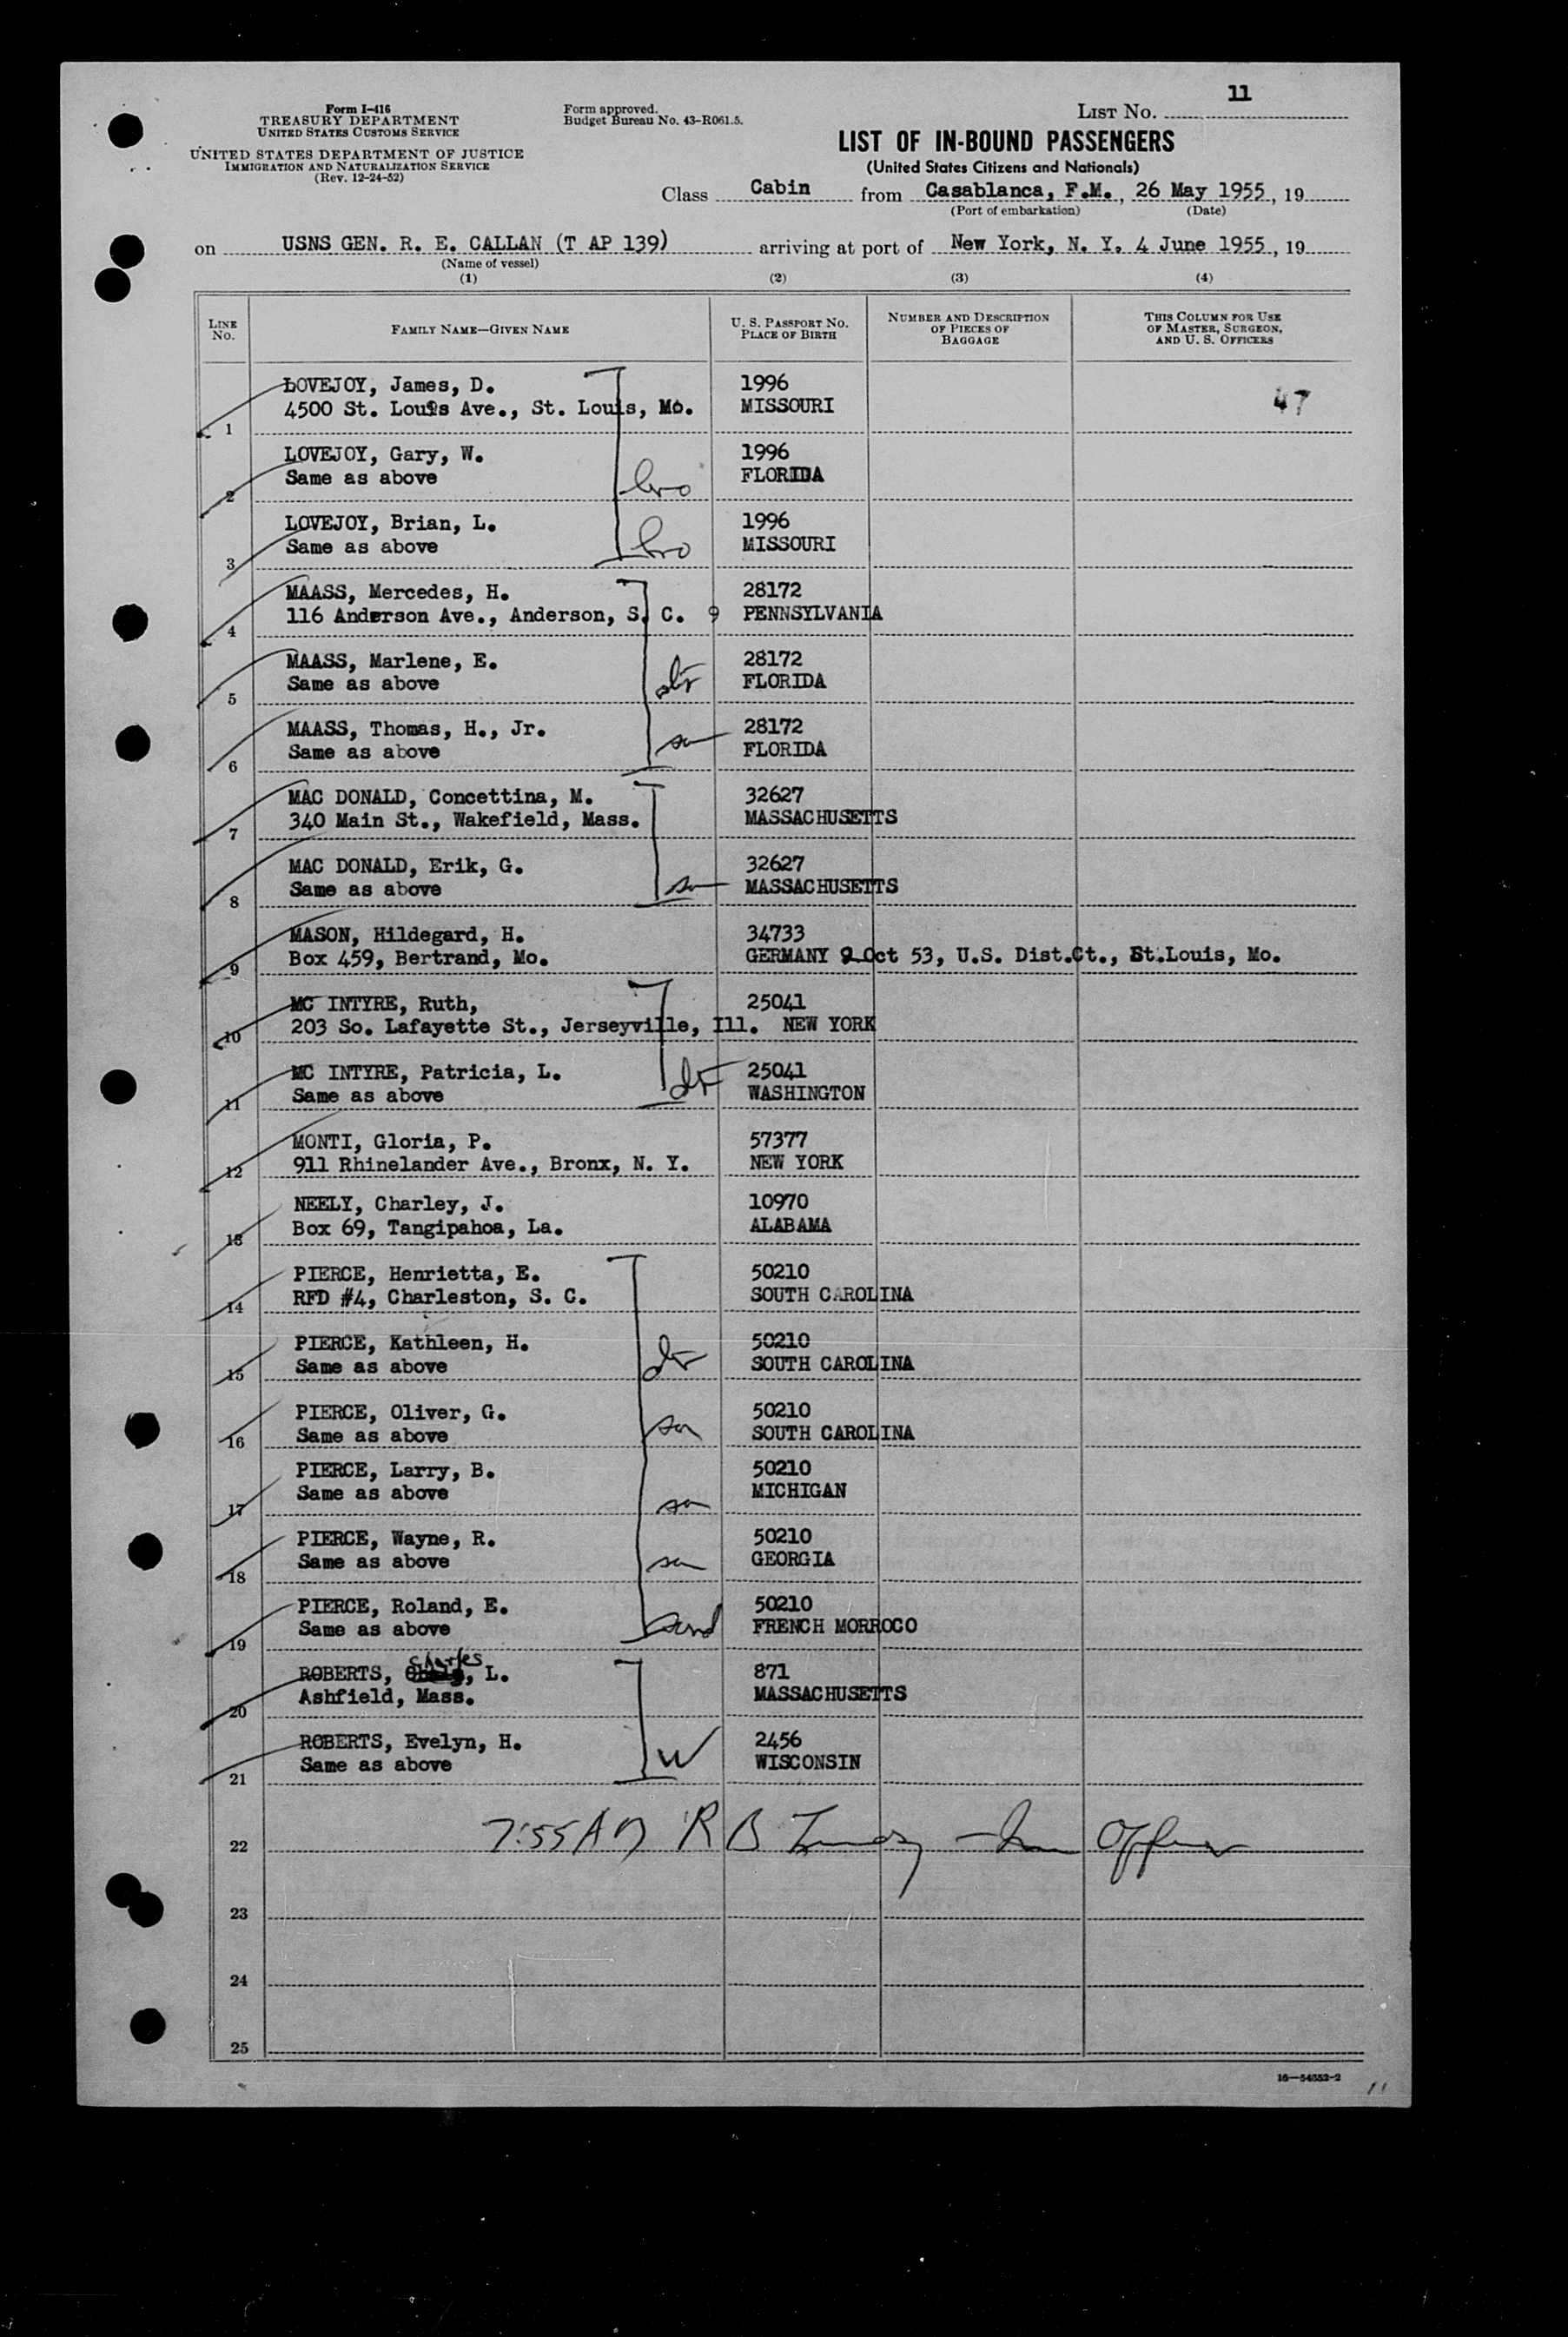 11
Form I-416
TREASURY DEPARTMENT
UNITED STATES CUSTOMS SERVICE
UNITED STATES DEPARTMENT OF JUSTICE
IMMIGRATION AND NATURALIZATION SERVICE
(Rev. 12-24-52)
Form approved.
Budget Bureau No. 43-R061.5.
LIST NO.
LIST OF IN-BOUND PASSENGERS
(United States Citizens and Nationals)
Class Cabin from Casablanca, F.M., 26 May 1955, 19
(Port of embarkation) (Date)
on USNS GEN. R. E. CALLAN (T AP 139) arriving at port of New York, N. Y. 4 June 1955, 19
(Name of vessel)
(1) (2) (3) (4)
LINE NO. FAMILY NAME—GIVEN NAME U. S. PASSPORT NO. PLACE OF BIRTH NUMBER AND DESCRIPTION OF PIECES OF BAGGAGE THIS COLUMN FOR USE OF MASTER, SURGEON, AND U. S. OFFICERS
LOVEJOY, James, D. 1996 47
1 4500 St. Louis Ave., St. Louis, Mo. MISSOURI
LOVEJOY, Gary, W. 1996
2 Same as above bro FLORIDA
LOVEJOY, Brian, L. 1996
3 Same as above bro MISSOURI
MAASS, Mercedes, H. 28172
4 116 Anderson Ave., Anderson, S. C. 9 PENNSYLVANIA
MAASS, Marlene, E. 28172
5 Same as above dtr FLORIDA
MAASS, Thomas, H., Jr. 28172
6 Same as above son FLORIDA
MAC DONALD, Concettina, M. 32627
7 340 Main St., Wakefield, Mass. MASSACHUSETTS
MAC DONALD, Erik, G. 32627
8 Same as above son MASSACHUSETTS
MASON, Hildegard, H. 34733
9 Box 459, Bertrand, Mo. GERMANY 9 Oct 53, U.S. Dist.Ct., St.Louis, Mo.
MC INTYRE, Ruth, 25041
10 203 So. Lafayette St., Jerseyville, Ill. NEW YORK
MC INTYRE, Patricia, L. 25041
11 Same as above dtr WASHINGTON
MONTI, Gloria, P. 57377
12 911 Rhinelander Ave., Bronx, N. Y. NEW YORK
NEELY, Charley, J. 10970
13 Box 69, Tangipahoa, La. ALABAMA
PIERCE, Henrietta, E. 50210
14 RFD #4, Charleston, S. C. SOUTH CAROLINA
PIERCE, Kathleen, H. 50210
15 Same as above dtr SOUTH CAROLINA
PIERCE, Oliver, G. 50210
16 Same as above son SOUTH CAROLINA
PIERCE, Larry, B. 50210
17 Same as above son MICHIGAN
PIERCE, Wayne, R. 50210
18 Same as above son GEORGIA
PIERCE, Roland, E. 50210
19 Same as above FRENCH MORROCO
Charles
ROBERTS, L. 871
20 Ashfield, Mass. MASSACHUSETTS
ROBERTS, Evelyn, H. 2456
21 Same as above W WISCONSIN
22 7:55 AM R B Imm Officer
23
24
25
16—54552-2
11